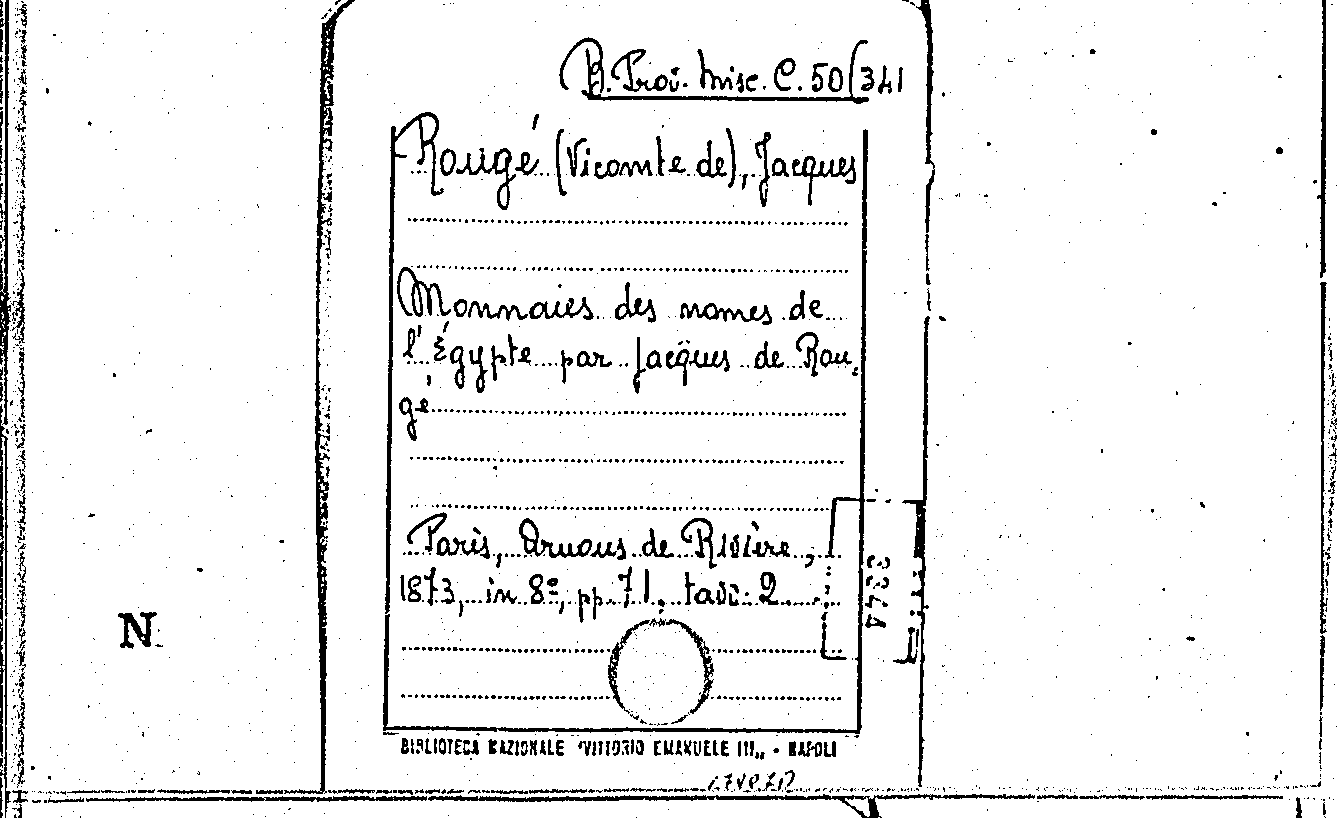 B. Prov. Misc. C. 50(341
Rougé (Vicomte de), Jacques
Monnaies des nomes de
l'Égypte par Jacques de Rou-
gé
Paris, Arnous de Rivière,
1873, in 8º, pp. 71, tavv. 2.
3344
N
BIBLIOTECA NAZIONALE "VITTORIO EMANUELE III„ - NAPOLI